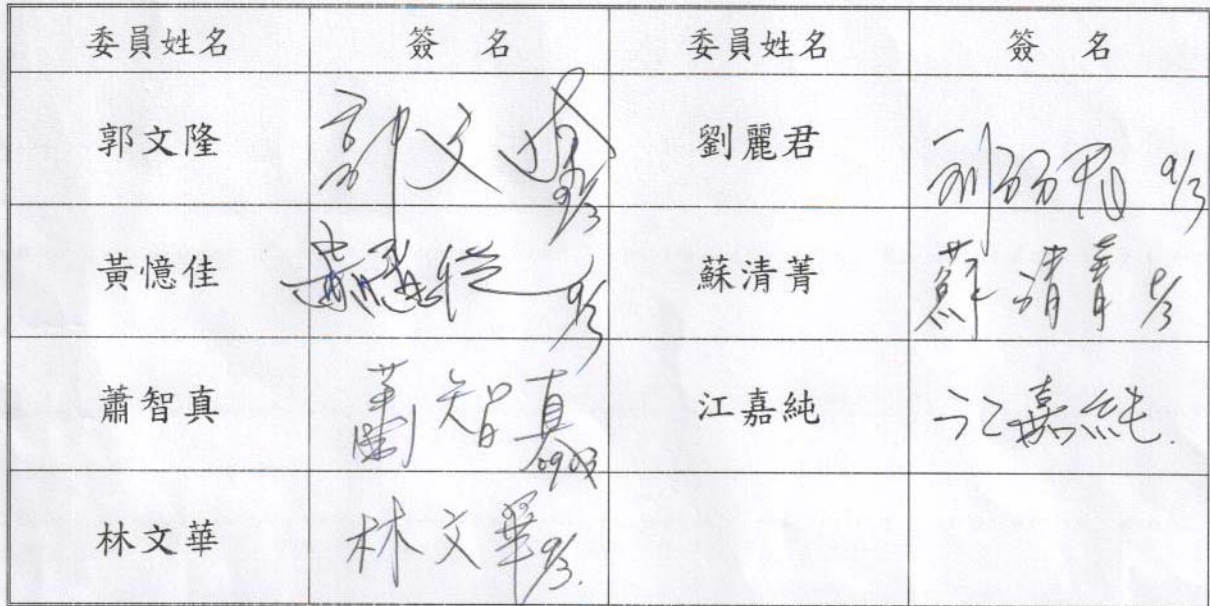 委員姓名 簽 名 委員姓名 簽 名
郭文隆 郭文隆 9/3 劉麗君 劉麗君 9/3
黃憶佳 黃憶佳 9/3 蘇清菁 蘇清菁 9/3
蕭智真 蕭智真 0903 江嘉純 江嘉純
林文華 林文華 9/3.